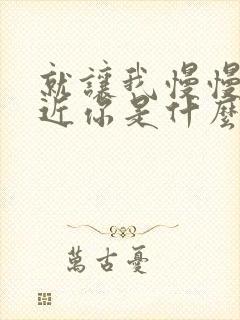 就讓我慢慢
近你是什麼
萬古憂